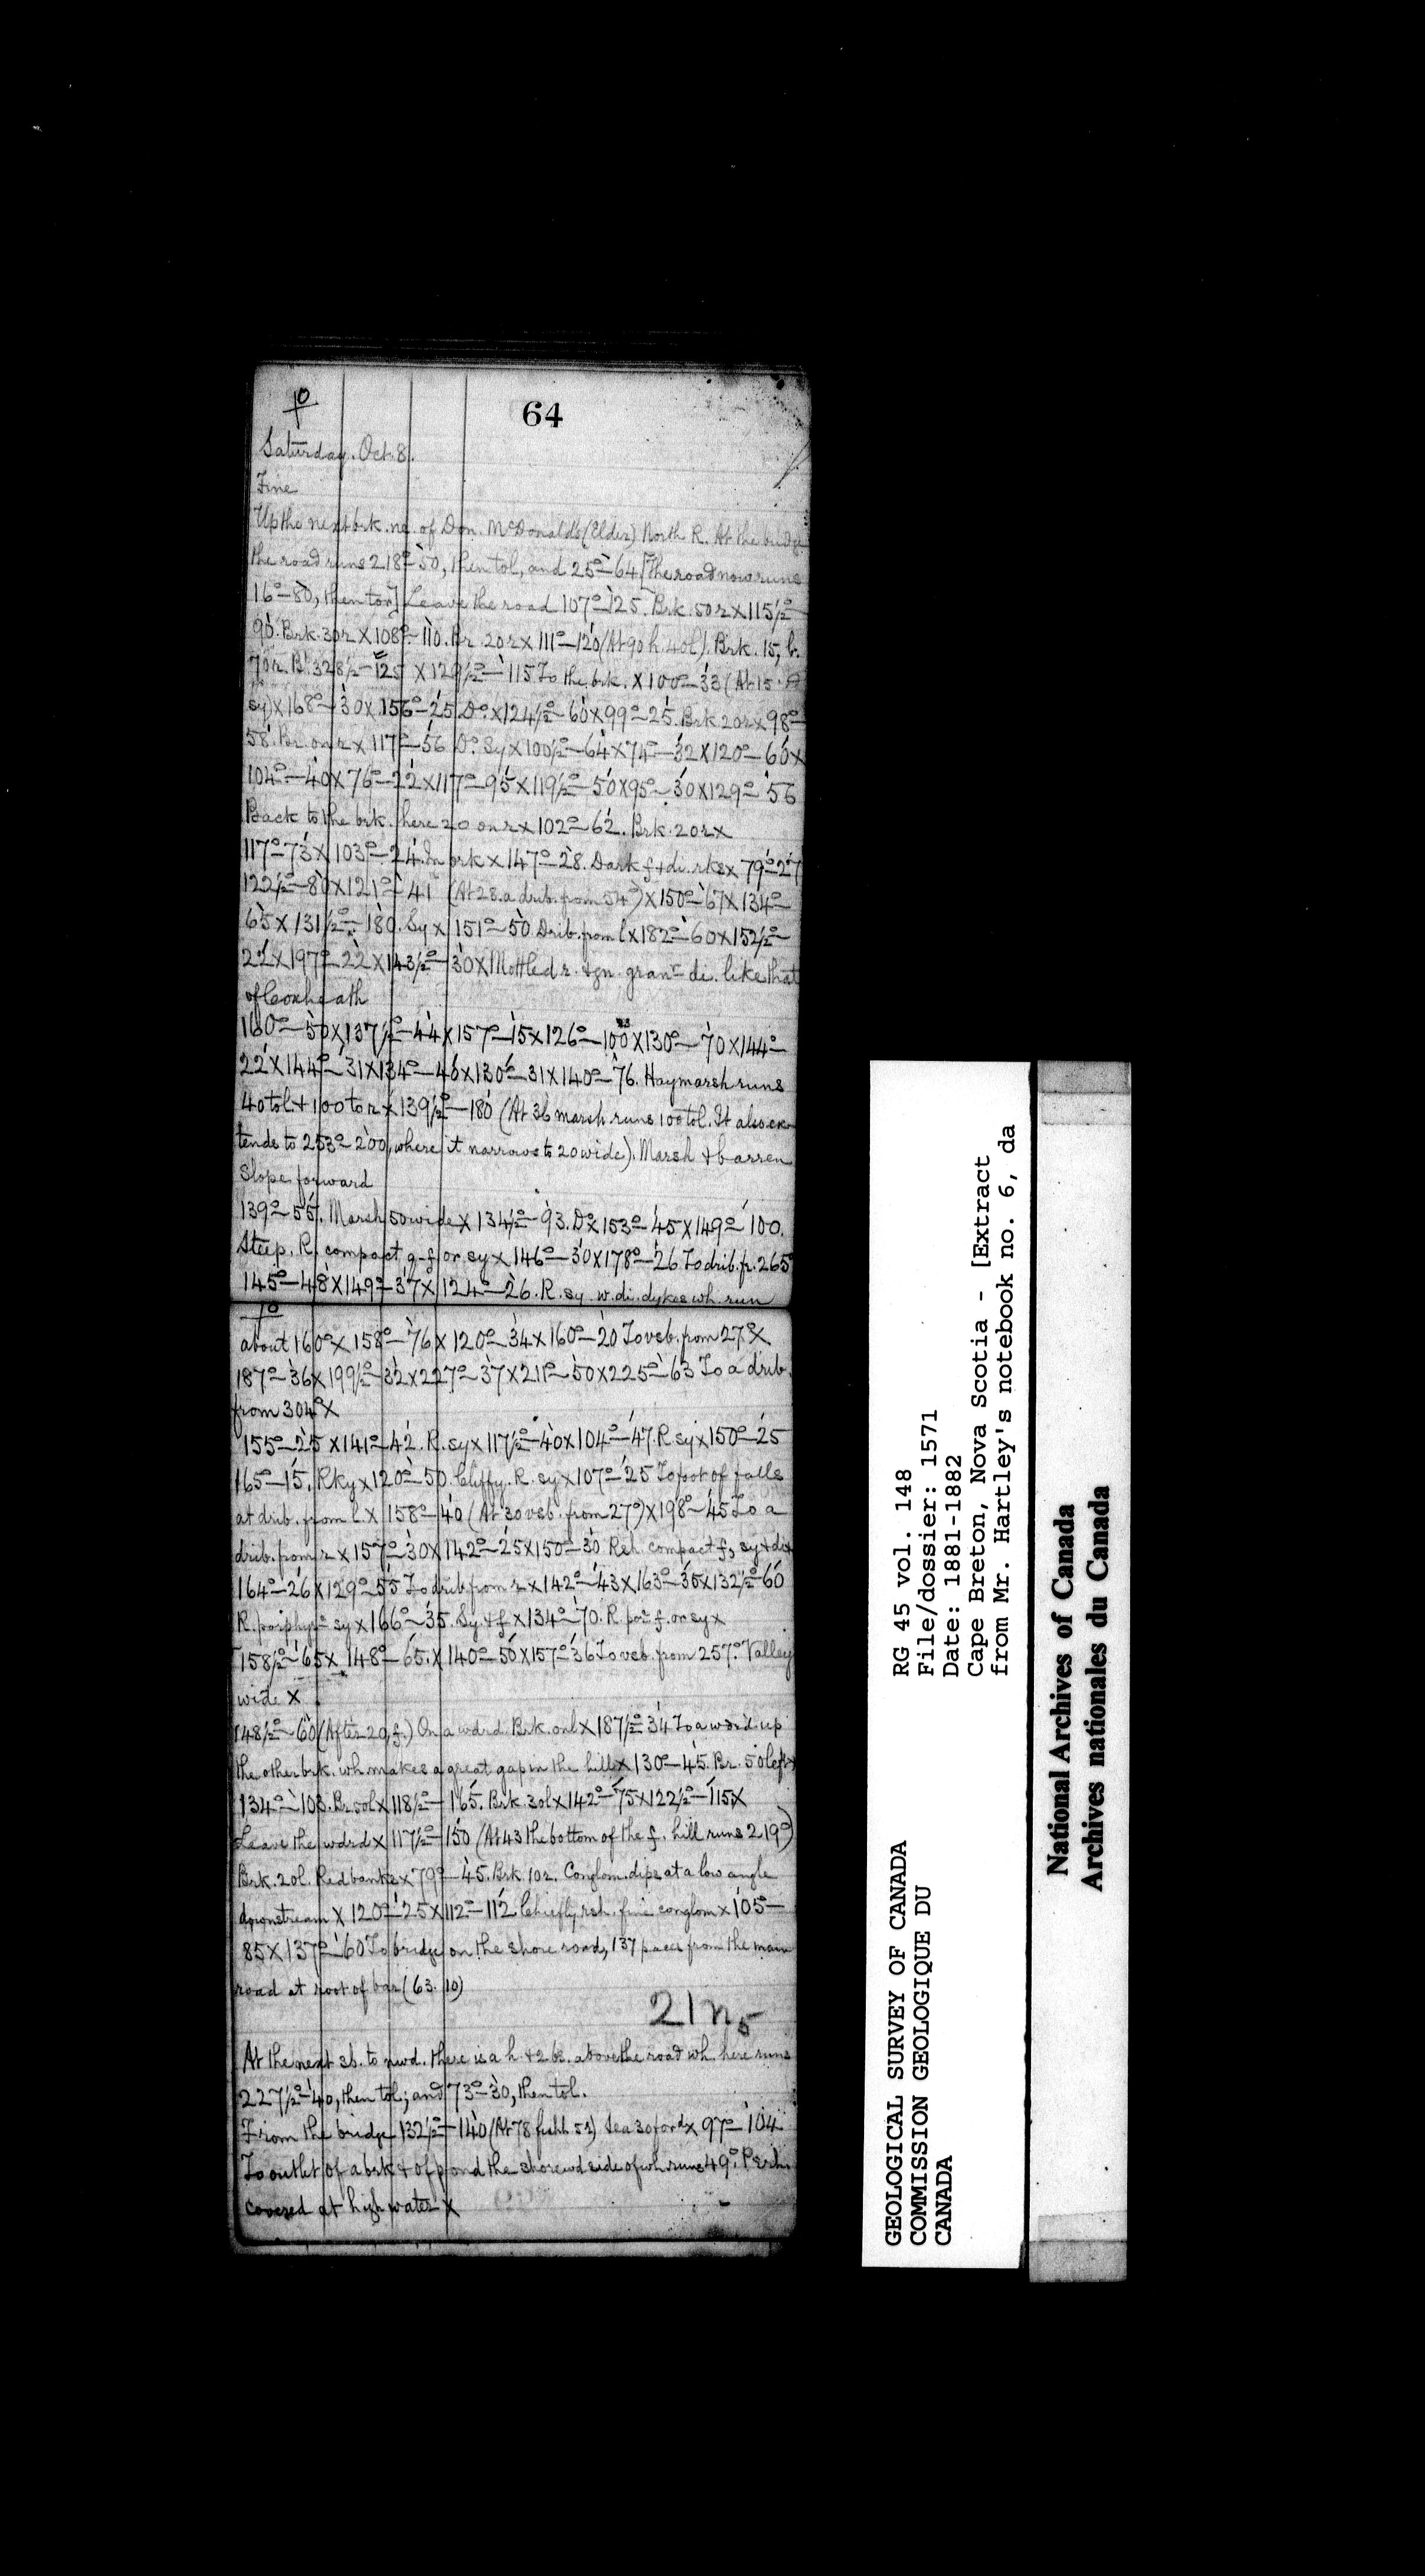 64
Saturday. Oct. 8.
Fine
Up the next brk. ne. of Don. McDonald's (Elder) North R. At the bridge
the road runs 218°–50, then tol, and 25°–64 [The road now runs
16°–80, then tor] Leave the road 107°–125. Brk. 50r x 115½°–
90. Brk. 30r x 108°–110. Br. 20r x 111°–120 (At 90 h. 40l). Brk. 15, b.
70r. B. 328½–125 x 129½°–115 To the brk. x 100°–33 (At 15
sy) x 168°–30 x 156°–25 D° x 124½°–60 x 99°–25. Brk 20r x 98°–
58. Br. on r x 117°–56 D° Sy x 100½°–64 x 74°–32 x 120°–60 x
104°–40 x 76°–22 x 117°–95 x 119½°–50 x 95°–30 x 129°–56
Back to the brk. here 20 on r x 102°–62. Brk. 20r x
117°–73 x 103°–24. In brk x 147°–28. Dark f + di. rks x 79°–27
122½°–80 x 121°–41 (At 28 a drib. from 54°) x 150°–67 x 134°–
65 x 131½°–180. Sy x 151°–50 Drib. from l x 182°–60 x 152½°–
22 x 197°–22 x 143½°–30 x Mottled r. + gn. granr. di. like that
of Coxheath
160°–50 x 137½°–44 x 157°–15 x 126°–100 x 130°–70 x 144°–
22 x 144°–31 x 134°–46 x 130°–31 x 140°–76. Hay marsh runs
40 tol + 100 to r x 139½°–180 (At 36 marsh runs 100 tol. It also ex-
tends to 253°–200, where it narrows to 20 wide). Marsh + barren
slope forward
139°–55. Marsh 50 wide x 134½°–93. D° x 153°–45 x 149°–100.
Steep. R. compact q-f or sy x 146°–30 x 178°–26 To drib. fr. 265°
145°–48 x 149°–37 x 124°–26. R. sy. w. di. dykes wh. run
about 160° x 158°–76 x 120°–34 x 160°–20 To vsb. from 27° x
187°–36 x 199½°–32 x 227°–37 x 211°–50 x 225°–63 To a drib.
from 304° x
155°–25 x 141°–42. R. sy x 117½°–40 x 104°–47. R sy x 150°–25
165°–15. Rky x 120°–50. Cliffy. R. sy x 107°–25 To foot of falls
at drib. from l. x 158°–40 (At 30 vsb. from 27°) x 198°–45 To a
drib. from r x 157°–30 x 142°–25 x 150°–30 Rsh. compact f, sy + di x
164°–26 x 129°–55 To drib from r x 142°–43 x 163°–35 x 132½°–60
R. porphyr. sy x 166°–35. Sy + f x 134°–70. R. por. f. or sy x
158½°–65 x 148°–65. x 140°–50 x 157°–36 To vsb. from 257°. Valley
wide x
148½°–60 (After 20, f.) On a wdrd. Brk. on l x 187½°–34 To a wdrd. up
the other brk. wh. makes a great gap in the hills x 130°–45. Br. 50 left x
134°–108. Br 50l x 118½°–165. Brk. 30l x 142°–75 x 122½°–115 x
Leave the wdrd x 117½°–150 (At 43 the bottom of the f. hill runs 219°)
Brk. 20l. Red banks x 79°–45. Brk. 10r. Conglom. dips at a low angle
downstream x 120°–25 x 112°–112 Chiefly rsh. fine conglom x 105°–
85 x 137°–60 To bridge on the shore road, 137 paces from the main
road at root of bar (63. 10)
21 n 5
At the next sb. to nwd. there is a h. + 2 bs. above the road wh. here runs
227½°–40, then tol; and 73°–30, then tol.
From the bridge 132½°–140 (At 78 fishh 51) Sea 30 ford x 97°–104
To outlet of a brk + of pond the shorewd side of wh runs 49°. Perh.
covered at high water x
RG 45 vol. 148
File/dossier: 1571
Date: 1881-1882
Cape Breton, Nova Scotia - [Extract
from Mr. Hartley's notebook no. 6, da
GEOLOGICAL SURVEY OF CANADA
COMMISSION GEOLOGIQUE DU
CANADA
National Archives of Canada
Archives nationales du Canada